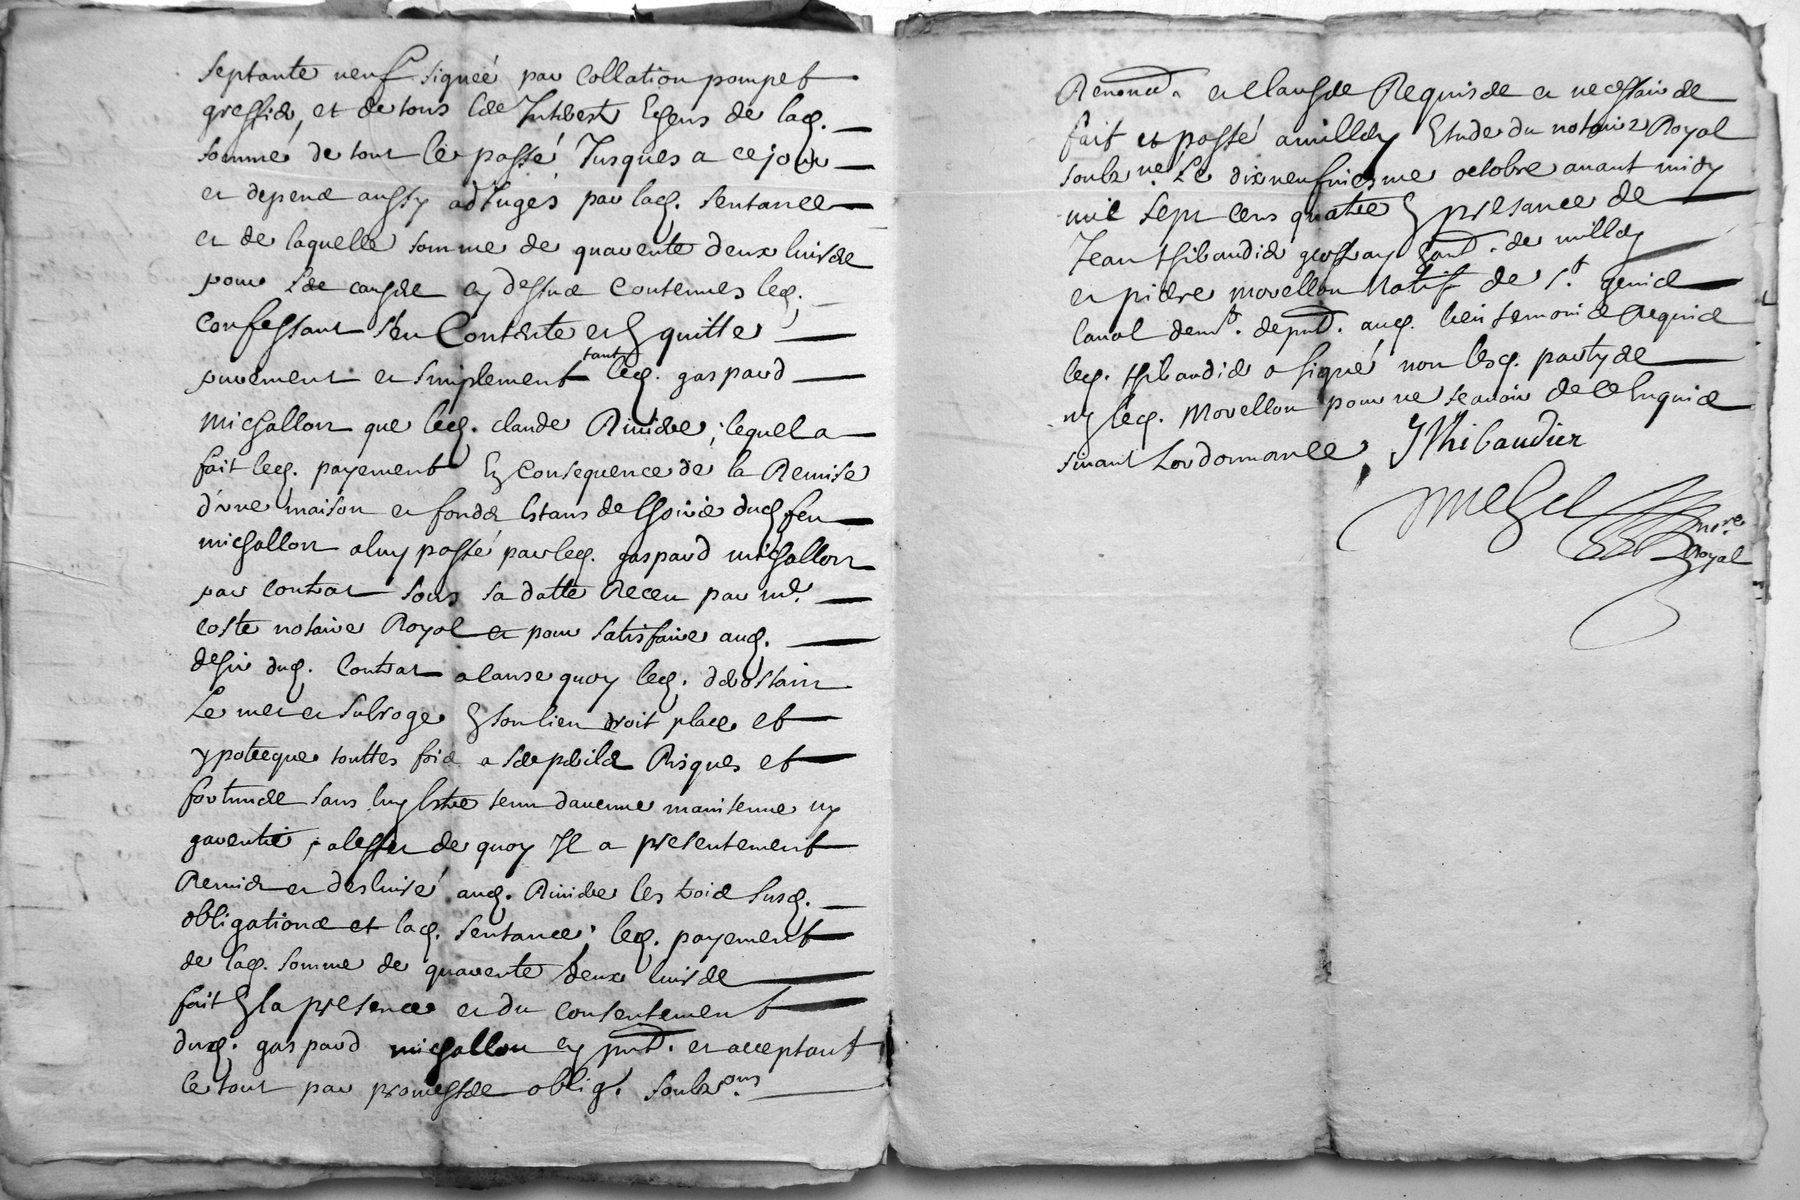 septante neuf signeé par Collation pompet
greffier, et de tous les Interest Legeus de lad.
somme de tout le passé Jusques a ce jour
et depend aussy adjugés par lad. sentance
et de laquelle somme de quarente deux livres
pour les causes cy dessus Contenues led.
confessant s'en Contente et en quitte
purement et simplement tant led. gaspard
Michallon que led. claude Riviere ; lequel a
fait led. payement En consequence de la Remise
d'une maison et fonds Estans de l'hoirie dud feu
michallon a luy passé par led. gaspard michallon
par contrat sous sa datte Receu par me.
coste notaire Royal et pour satisfaire aud.
desir dud. Contrat a cause quoy led.
Le met et subroge En son lieu droit place et
ypotecque touttes fois a ses perils Risques et
fortunes sans luy Estre tenu daucune maintenue ny
garentie, a leffet de quoy Il a presentement
Remis et deslivré aud. Riviere les trois susd.
obligations et lad. sentance ; led. payement
de lad. somme de quarente deux livres
fait En la presence et du consentement
dud. gaspard michallon cy pnt. et acceptant
le tout par promesses oblig. soubz.ons
Renond. et clauses Requises et necessaires
fait et passé a milléy Etude du notaire Royal
soubz.né Le dixneufviesme octobre avant midy
mil sept cens quatre En presance de
Jean thibaudier hant. de milléy
et pierre Morellon Natif de St. genis
laval dem.t. de pnt. aud. lieu temoins Requis
led. thibaudier a signé non lesd. partyes
ny led. Morellon pour ne scavoir de ce Enquis
suivant Lordonnance, JThibaudier
nore.
Royal